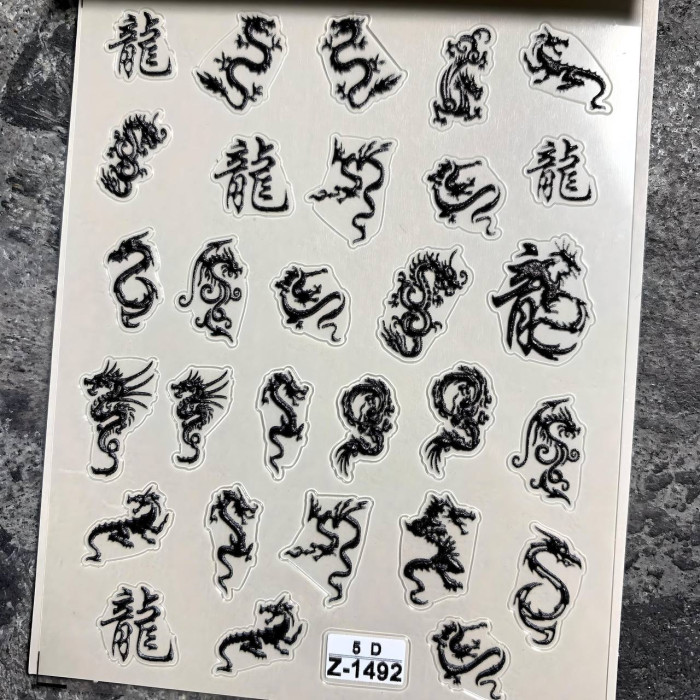 龍
龍
龍
龍
龍
5 D
Z-1492